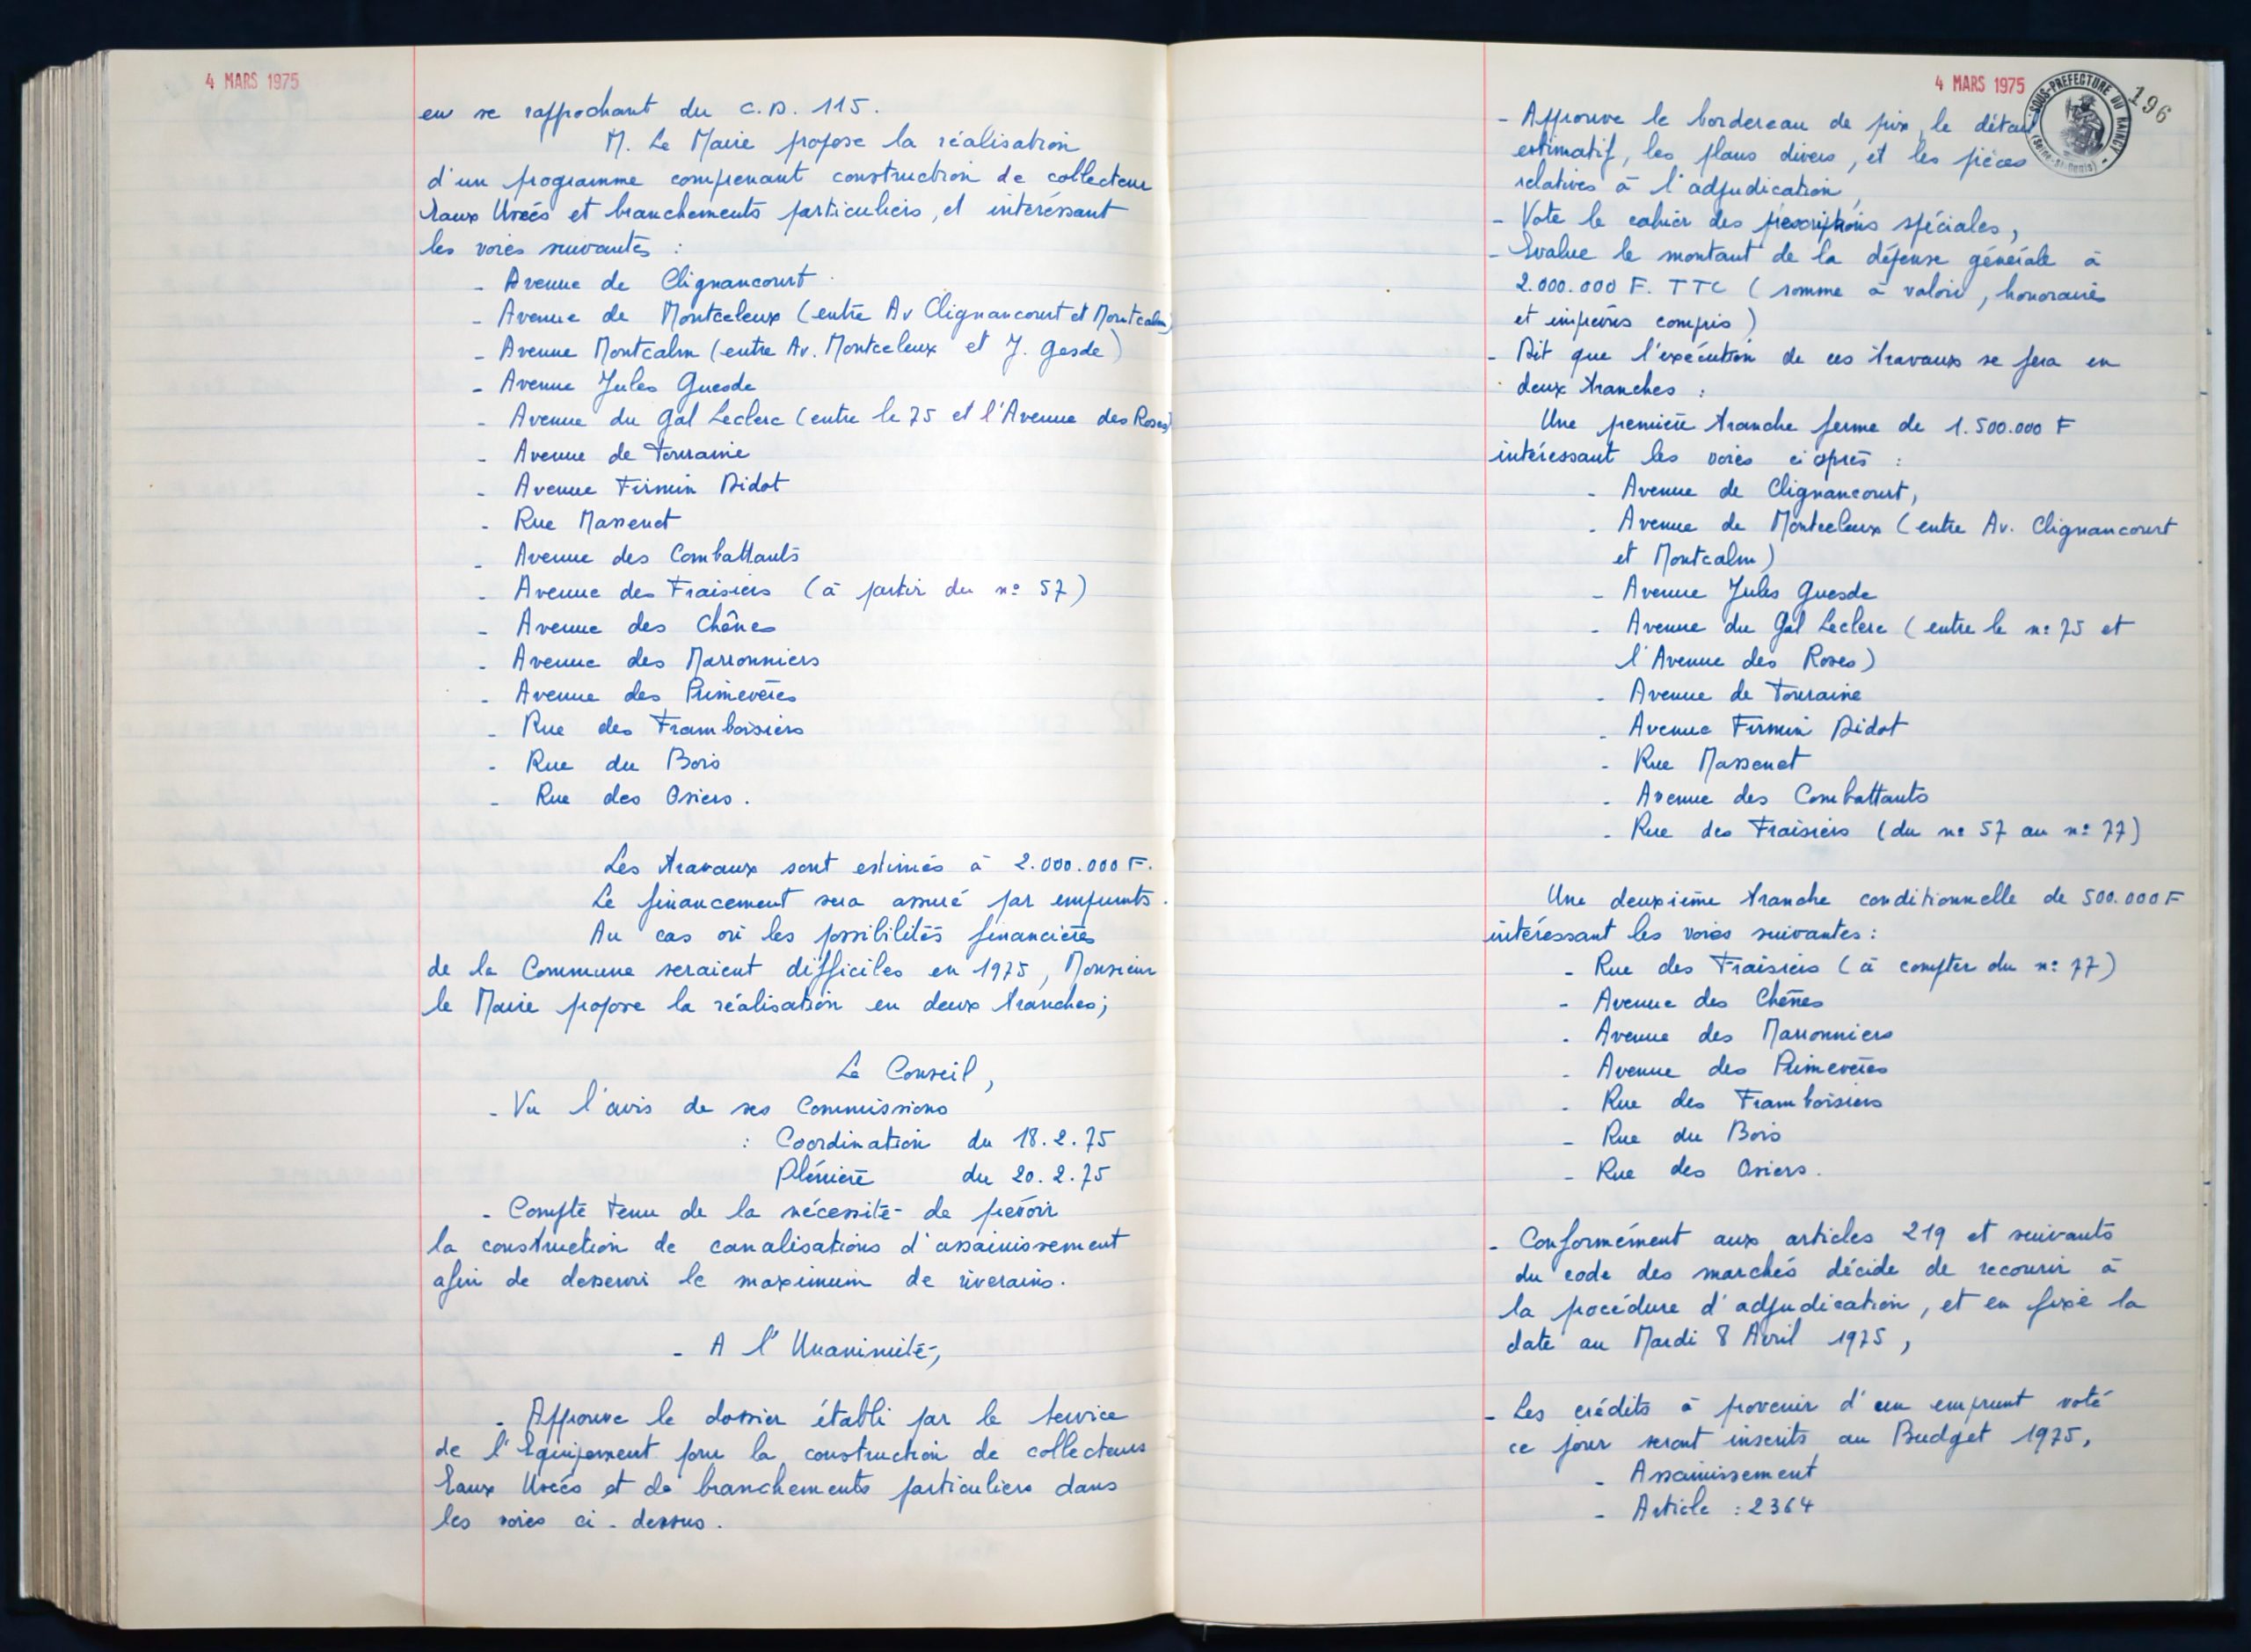 4 MARS 1975
en se rapprochant du C.D. 115.
M. Le Maire propose la réalisation
d'un programme comprenant construction de collecteur
Eaux Usées et branchements particuliers, et intéressant
les voies suivantes :
- Avenue de Clignancourt
- Avenue de Montceleux (entre Av Clignancourt et Montcalm)
- Avenue Montcalm (entre Av. Montceleux et J. Gesde)
- Avenue Jules Guesde
- Avenue du Gal Leclerc (entre le 75 et l'Avenue des Roses)
- Avenue de Touraine
- Avenue Firmin Didot
- Rue Massenet
- Avenue des Combattants
- Avenue des Fraisiers (à partir du n° 57)
- Avenue des Chênes
- Avenue des Marronniers
- Avenue des Primevères
- Rue des Framboisiers
- Rue du Bois
- Rue des Osiers.
Les travaux sont estimés à 2.000.000 F.
Le financement sera assuré par emprunts.
Au cas où les possibilités financières
de la Commune seraient difficiles en 1975, Monsieur
le Maire propose la réalisation en deux tranches;
Le Conseil,
- Vu l'avis de ses Commissions
: Coordination du 18.2.75
Plénière du 20.2.75
- Compte tenu de la nécessité de prévoir
la construction de canalisations d'assainissement
afin de desservir le maximum de riverains.
- A l'Unanimité,
- Approuve le dossier établi par le Service
de l'Equipement pour la construction de collecteurs
Eaux Usées et de branchements particuliers dans
les voies ci-dessus.
4 MARS 1975
SOUS-PREFECTURE DU RAINCY
(Seine-St-Denis)
196
- Approuve le bordereau de prix, le détail
estimatif, les plans divers, et les pièces
relatives à l'adjudication,
- Vote le cahier des prescriptions spéciales,
- Evalue le montant de la dépense générale à
2.000.000 F. TTC (somme à valoir, honoraires
et imprévus compris)
- Dit que l'exécution de ces travaux se fera en
deux tranches :
Une première tranche ferme de 1.500.000 F
intéressant les voies ci après :
- Avenue de Clignancourt,
- Avenue de Montceleux (entre Av. Clignancourt
et Montcalm)
- Avenue Jules Guesde
- Avenue du Gal Leclerc (entre le n° 75 et
l'Avenue des Roses)
- Avenue de Touraine
- Avenue Firmin Didot
- Rue Massenet
- Avenue des Combattants
- Rue des Fraisiers (du n° 57 au n° 77)
Une deuxième tranche conditionnelle de 500.000 F
intéressant les voies suivantes :
- Rue des Fraisiers (à compter du n° 77)
- Avenue des Chênes
- Avenue des Marronniers
- Avenue des Primevères
- Rue des Framboisiers
- Rue du Bois
- Rue des Osiers.
- Conformément aux articles 219 et suivants
du code des marchés décide de recourir à
la procédure d'adjudication, et en fixe la
date au Mardi 8 Avril 1975,
- Les crédits à provenir d'un emprunt voté
ce jour seront inscrits au Budget 1975,
- Assainissement
- Article : 2364